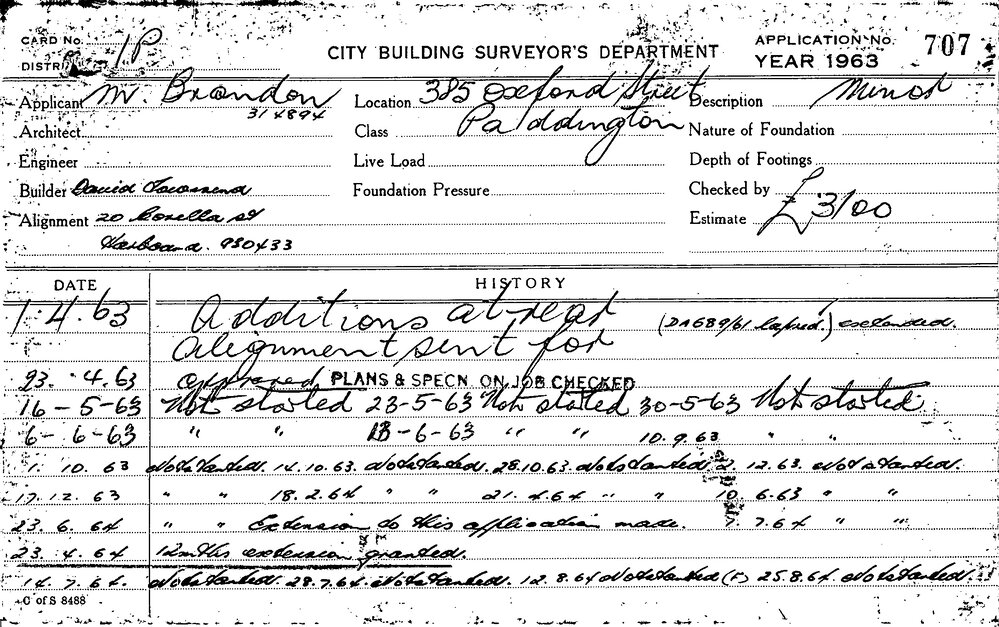 CARD No. 1P
DISTRICT
CITY BUILDING SURVEYOR'S DEPARTMENT
APPLICATION No. 707
YEAR 1963
Applicant M. Brandon
314894
Location 385 Oxford Street
Paddington
Description Minor
Architect
Class
Nature of Foundation
Engineer
Live Load
Depth of Footings
Builder David Townsend
Foundation Pressure
Checked by
Alignment 20 Corella St
Harboard. 930433
Estimate £3100
DATE HISTORY
1.4.63 Additions at rear (DA689/61 lapsed.) extended.
Alignment sent for
23.4.63 approved PLANS & SPECN. ON JOB CHECKED
16-5-63 Not started 23-5-63 Not started 30-5-63 Not started
6-6-63 " " 13-6-63 " " 10.9.63 " "
1. 10. 63 Not started. 14.10.63. Not started. 28.10.63. Not started 2. 12.63. Not started.
17.12.63 " " 18.2.64 " " 21.4.64 " " 10. 6.63 " "
23. 6. 64 " " Extension to this application made. 7.64 " "
23. 4. 64 12mths extension granted.
14. 7. 64. Not started. 28.7.64. Not started. 12.8.64 Not started (F) 25.8.64. Not started.
C of S 8488